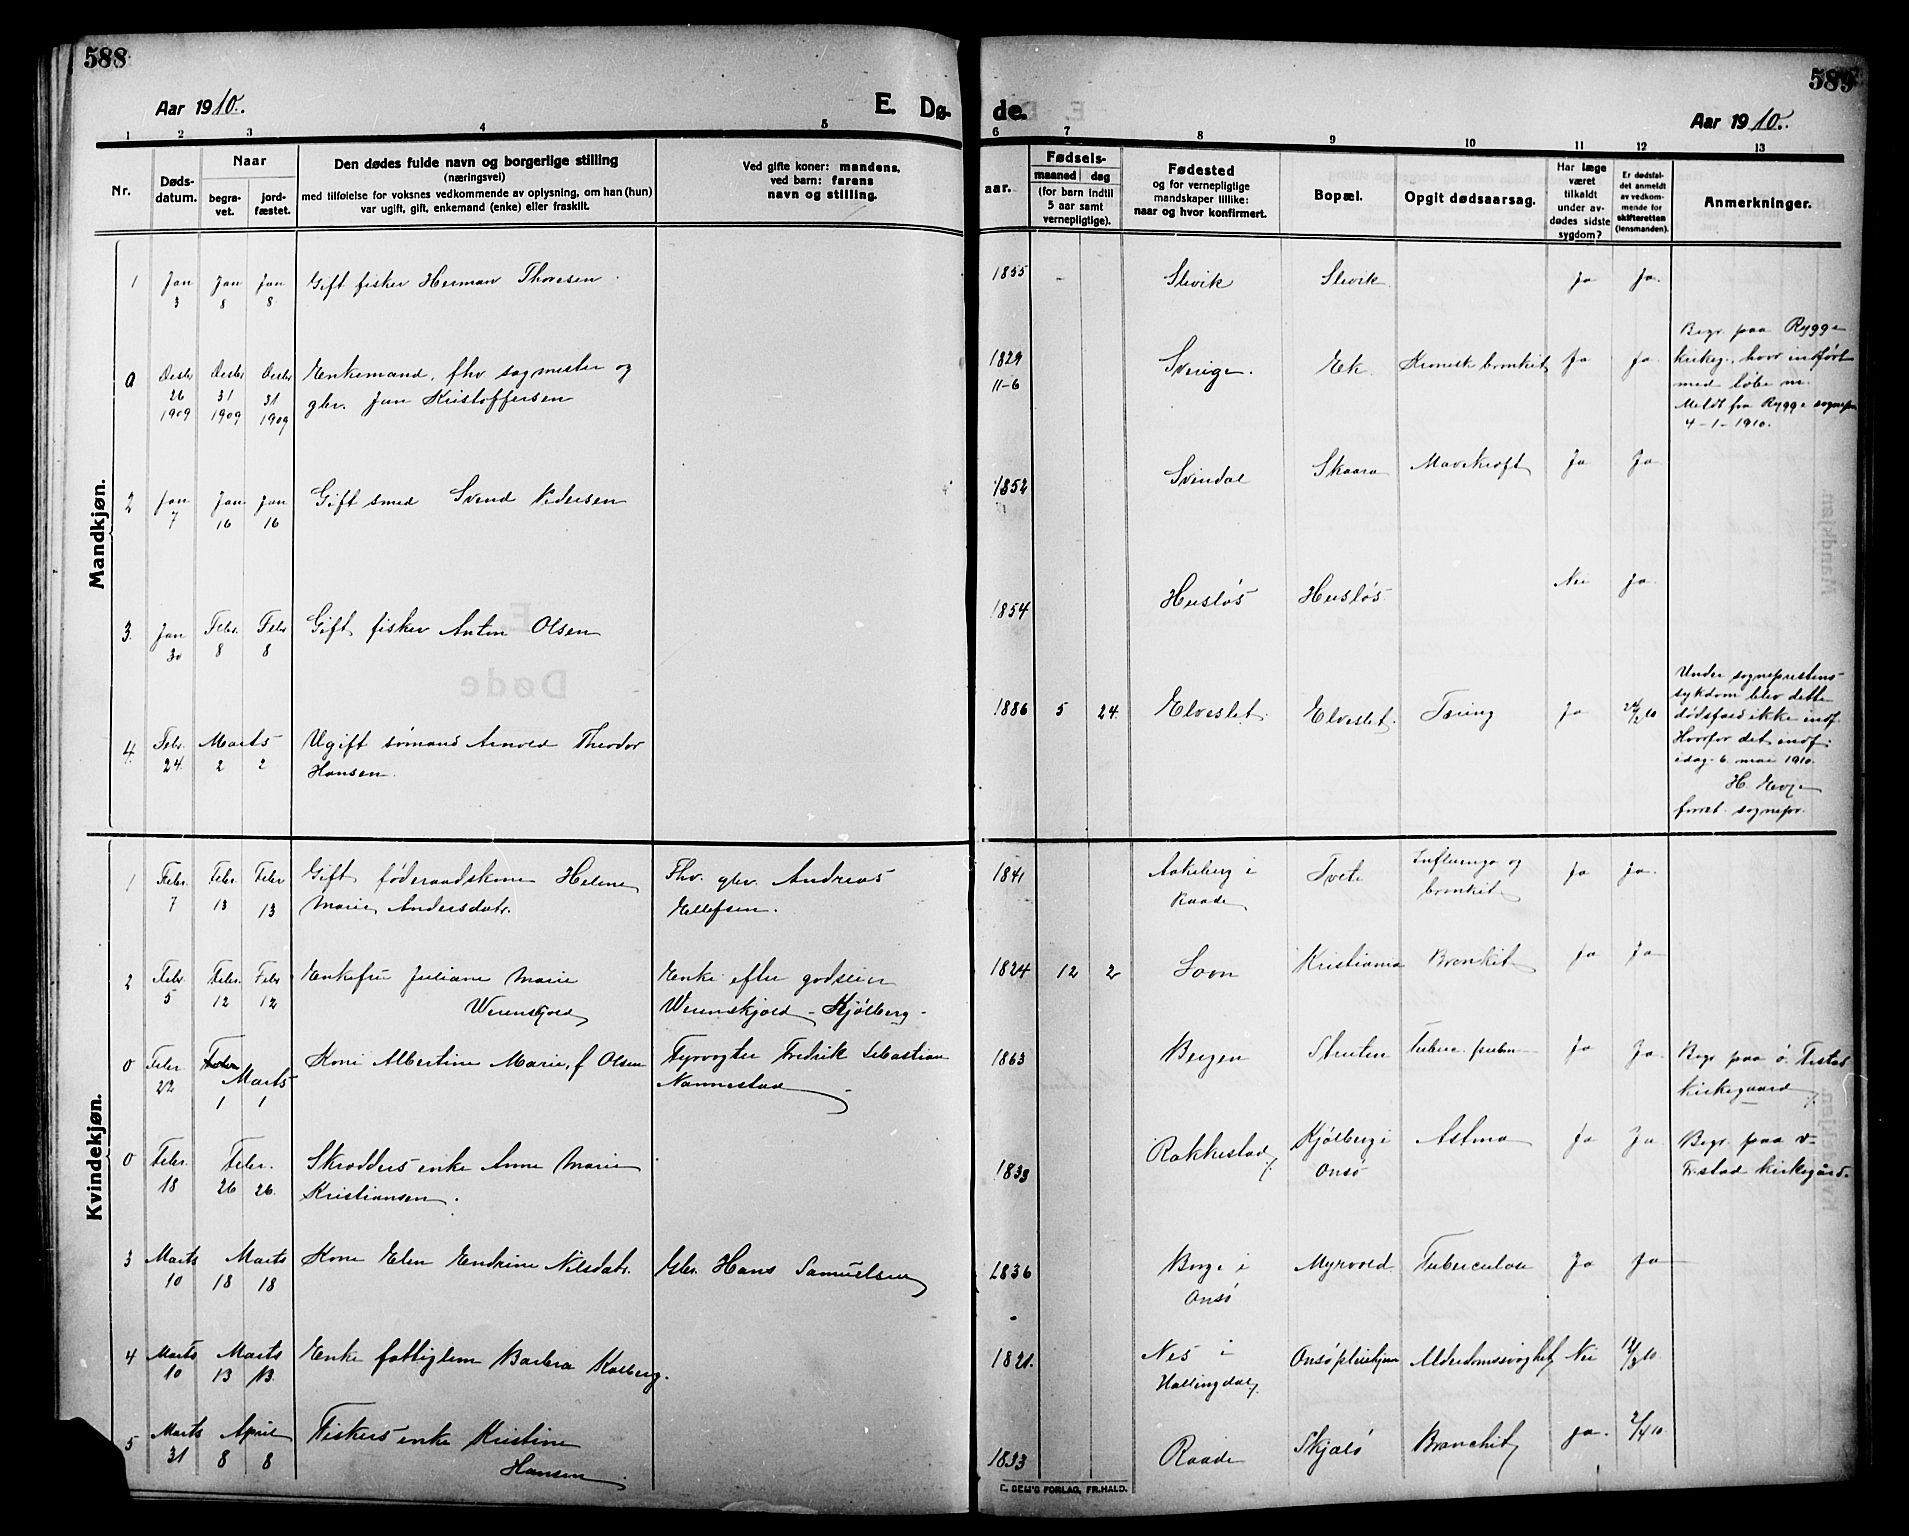 588
589
Aar 1910.
E. Dø-
de.
Aar 1910.
1 2 3 4 5 6 7 8 9 10 11 12 13
Nr.
Døds-
datum.
Naar
begra-
vet.
jord-
fæstet.
Den dødes fulde navn og borgerlige stilling
(næringsvei)
med tilføielse for voksnes vedkommende av oplysning, om han (hun)
var ugift, gift, enkemand (enke) eller fraskilt.
Ved gifte koner: mandens,
ved barn: farens
navn og stilling.
aar.
Fødsels-
maaned dag
(for barn indtil
5 aar samt
vernepligtige).
Fødested
og for vernepligtige
mandskaper tillike:
naar og hvor konfirmert.
Bopæl.
Opgit dødsaarsag.
Har læge
været
tilkaldt
under av-
dødes sidste
sygdom?
Er dødsfal-
det anmeldt
av vedkom-
mende for
skifteretten
(lensmanden).
Anmerkninger.
Mandkjøn.
1 Jan 3 Jan 8 Jan 8 Gift fisker Herman Thoresen 1855 - Slevik Slevik Ja Ja.
0 Desbr 26 1909 Desbr 31 1909 Desbr 31 1909 Enkemand, fhv. sagmester og
gbr. Jan Kristoffersen
1829 11-6 Sverige. Ek. Kronisk bronkit Ja Ja
Begr. paa Rygge
kirkeg., hvor indført
med løbe nr.
Meldt fra Rygge sognepr.
4-1-1910.
2 Jan 7 Jan 16 Jan 16 Gift smed Svend Pedersen 1852 Svindal Skaara Mavekræft Ja Ja
3. Jan 30 Febr. 8 Febr 8 Gift fisker Anton Olsen 1854 Husløs Husløs Nei Ja.
4. Febr. 24 Marts 2 2 Ugift sømand Arnold Theodor
Hansen.
1886 5 24. Elveslet. Elveslet. Tæring Ja 24/2 10
Under sogneprestens
sykdom blev dette
dødsfald ikke indf.
Hvorfor det indf.
idag 6. mai 1910.
H. Evje
const. sognepr.
Kvindekjøn.
1 Febr. 7 Febr. 13 Febr 13 Gift føderaadskone Helene
Marie Andersdatr.
Fhv. gbr. Andreas
Ellefsen.
1841 Aakeberg i
Raade
Tvete Influenza og
bronkit
Ja Ja.
2 Febr. 5 Febr. 12 Febr 12 Enkefru Juliane Marie
Werenskjold
Enke efter godseier
Werenskjold - Kjølberg -
1824 12 2 Soon Kristiania Bronkit Ja Ja
0 Febr. 22 Marts 1 1 Kone Albertine Marie, f. Olsen
Fyrvogter Fredrik Sebastian
Nannestad
1863 Bergen Struten Ja Ja.
Begr paa ø. Fr.stad
kirkegaard
0 Febr. 18 Febr. 26 26. Skrædders enke Anne Marie
Kristiansen.
1833 Rakkestad Kjølberg i
Onsø
Astma Ja Ja.
Begr. paa v-
Fr.stad kirkegård.
3 Marts 10 Marts 18 18 Kone Elen Endrine Nilsdatr. Gbr. Hans Samuelsen
1836 Borge i
Onsø
Myrvold Tuberculose Ja Ja
4 Marts 10 Marts 13 13. Enke fattiglem Barbra Kolberg.
1821. Nes i
Hallingdal
Onsø pleiehjem Alderdomssvaghet Nei 12/3 10.
5 Marts 31 April 8 8 Fiskers enke Kristine
Hansen
1833 Raade Skjælø Bronchit Ja. 2/4 10
E. SEM'S FORLAG, FR.HALD.